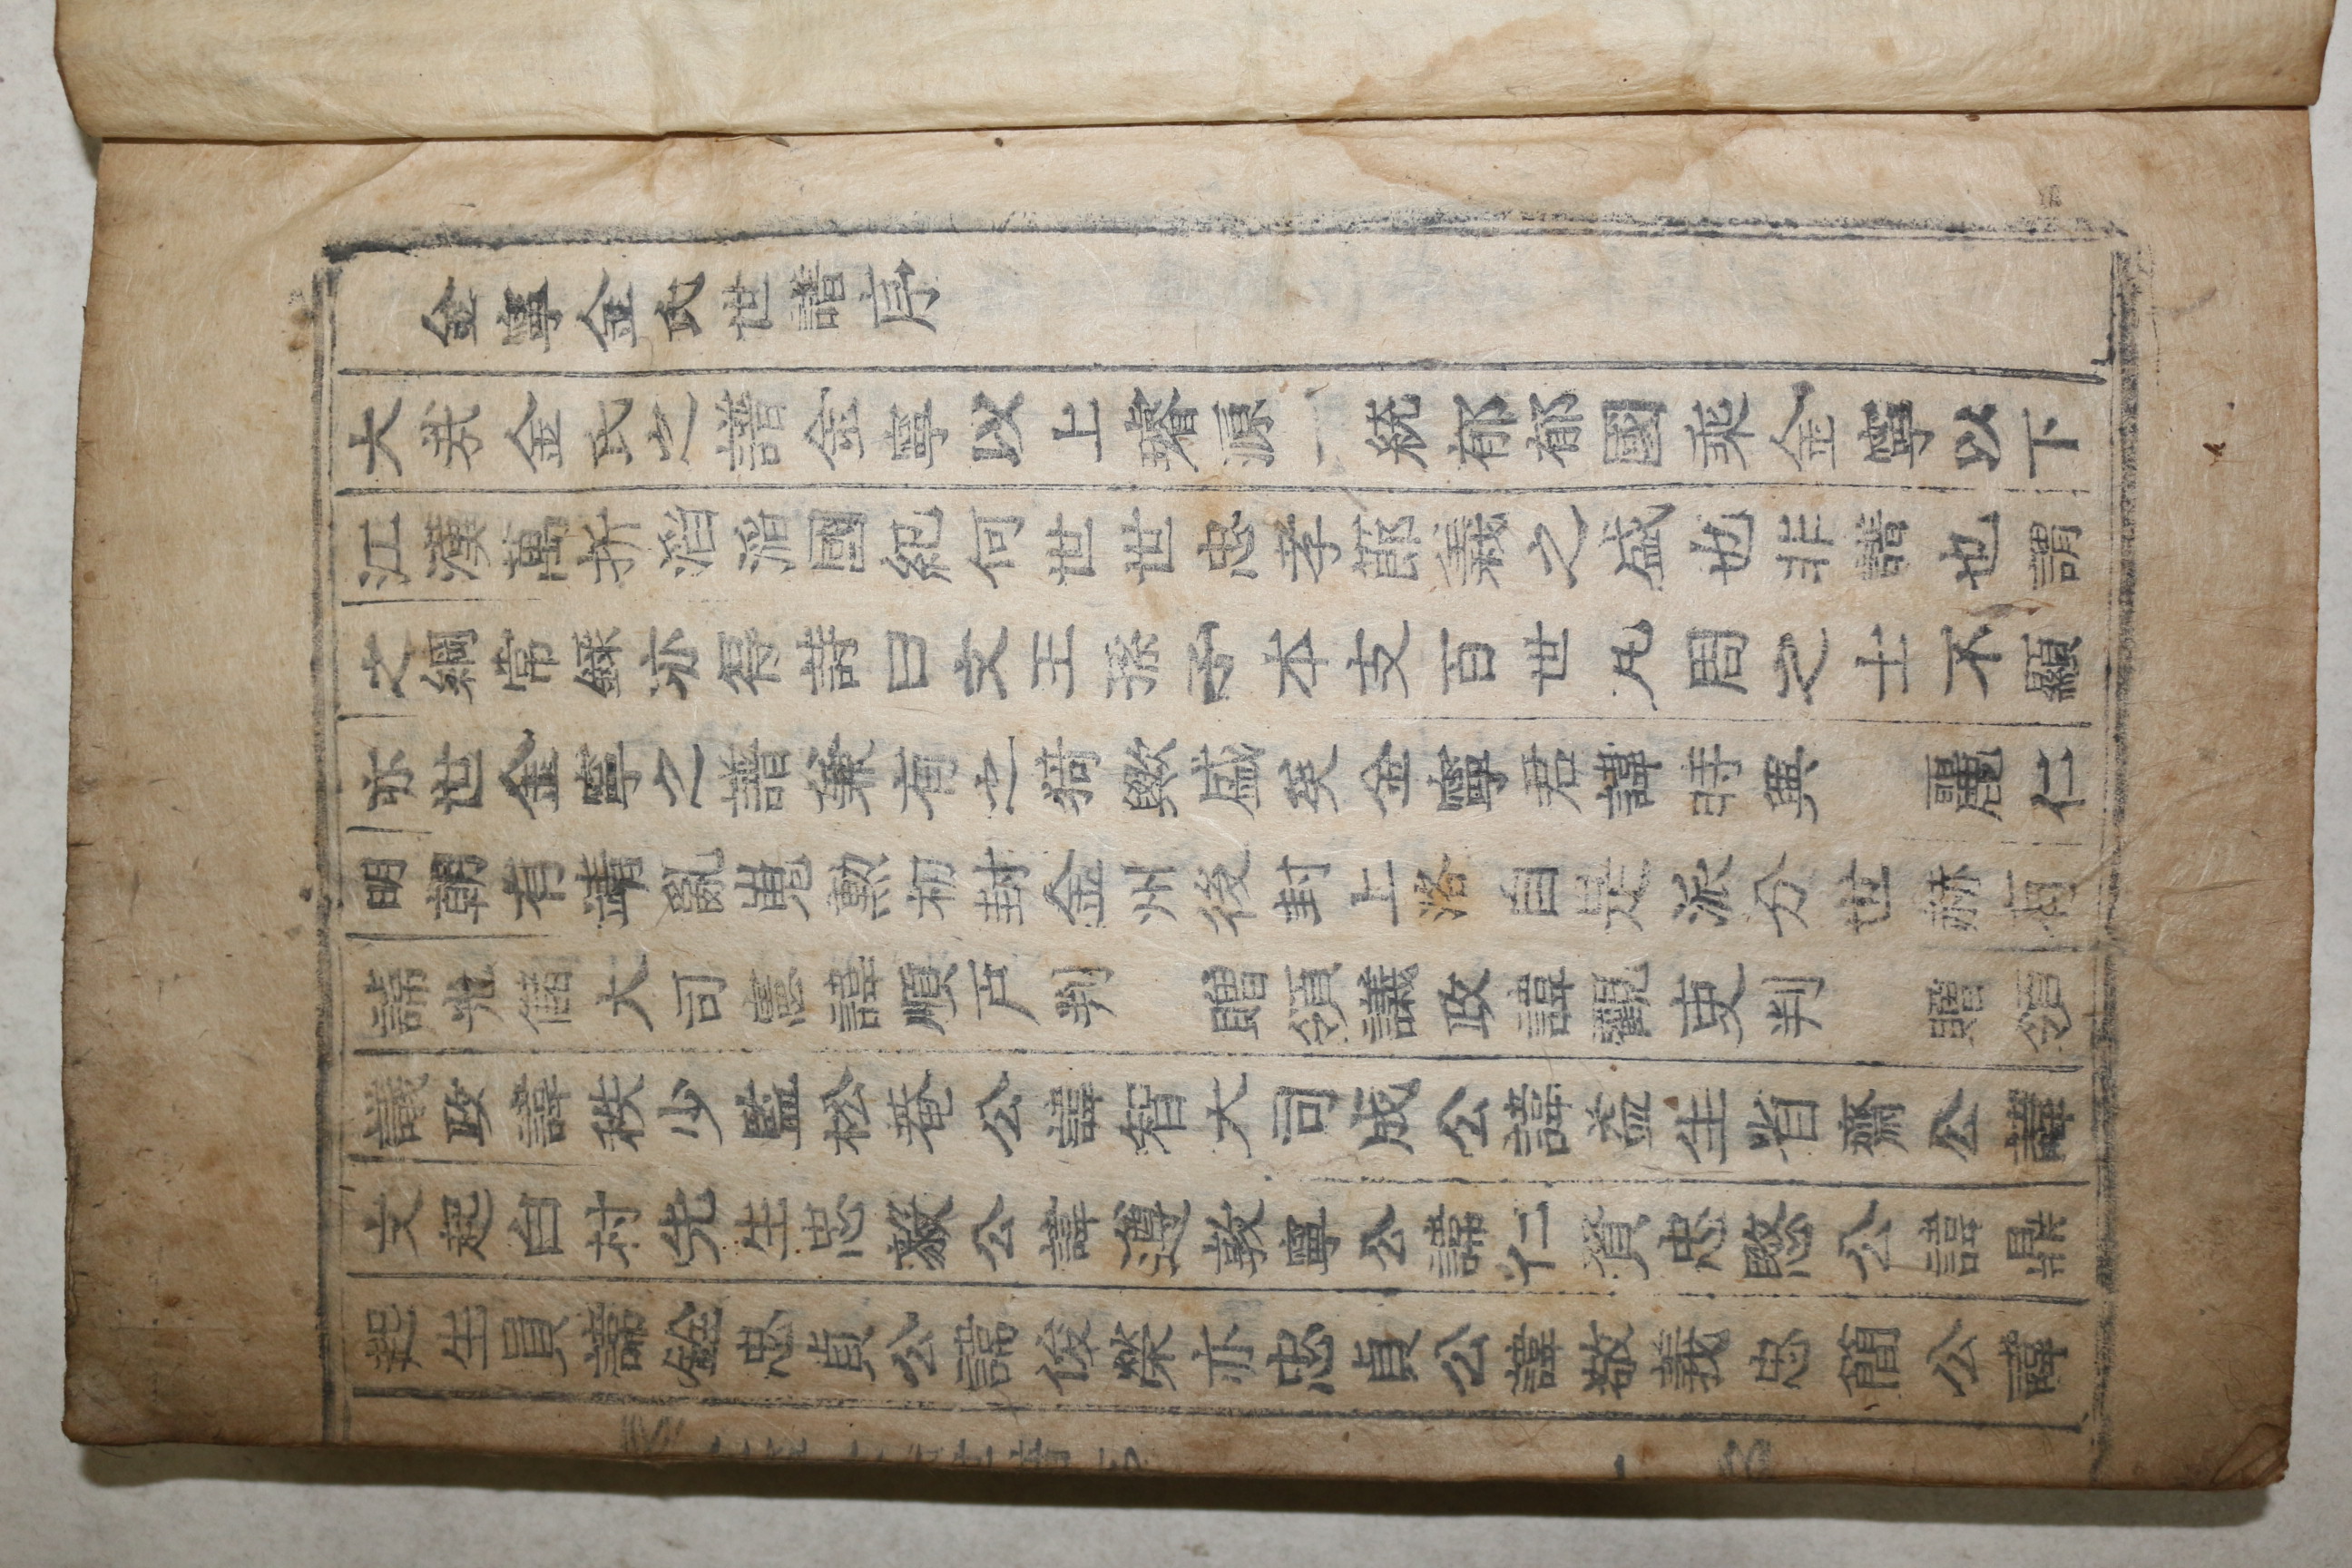 金寧金氏世譜序
大哉金氏之譜金寧以上璿源一統郁郁國乘金寧以下
江漢萬派滔滔國紀何世世忠孝節義之盛也非譜也謂
之綱常錄亦得詩曰文王孫子本支百世凡周之士不顯
亦世金寧之譜兼有之猗歟盛矣金寧君諱時興 麗仁
明朝有靖亂勳初封金州後封上洛自是派分世赫有
諱光儲大司憲諱順戶判 贈領議政諱觀吏判 贈領
議政諱秩少監松菴公諱智大司成公諱益生省齋公諱
文起白村先生忠毅公諱遵敦寧公諱仁贊忠愍公諱鼎
起生員諱忠貞公諱俊榮亦忠貞公諱敬義忠簡公諱